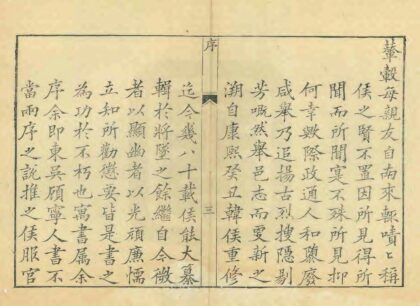 輦轂每親友自南來輙嘖嘖稱
侯之賢不置因所見得所
聞而所聞寔不殊所見抑
何幸歟際政通人和廢
咸舉乃追揚古烈搜隱剔
芳嘅然舉邑志而重新之
溯自康熙癸丑韓侯重修
序
三
迄今幾八十載侯能大纂
輯於將墜之餘繼自今微
者以顯幽者以光頑廉懦
立知所勸懲要皆是書之
為功於不朽也寓書属余
序余即東吳顧寧人書不
當兩序之說推之侯服官